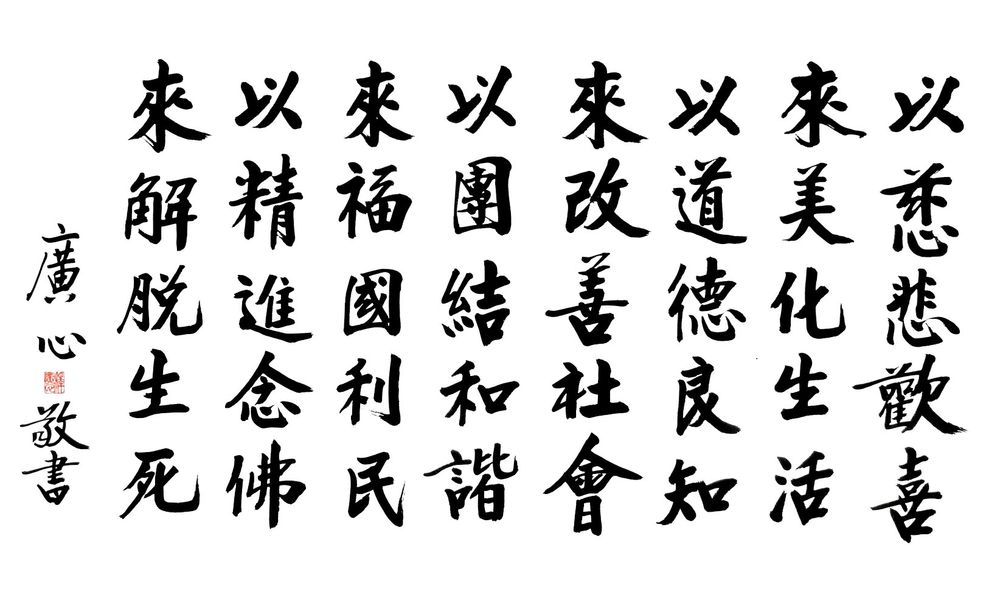 以慈悲歡喜
來美化生活
以道德良知
來改善社會
以團結和諧
來福國利民
以精進念佛
來解脱生死
廣心
敬書